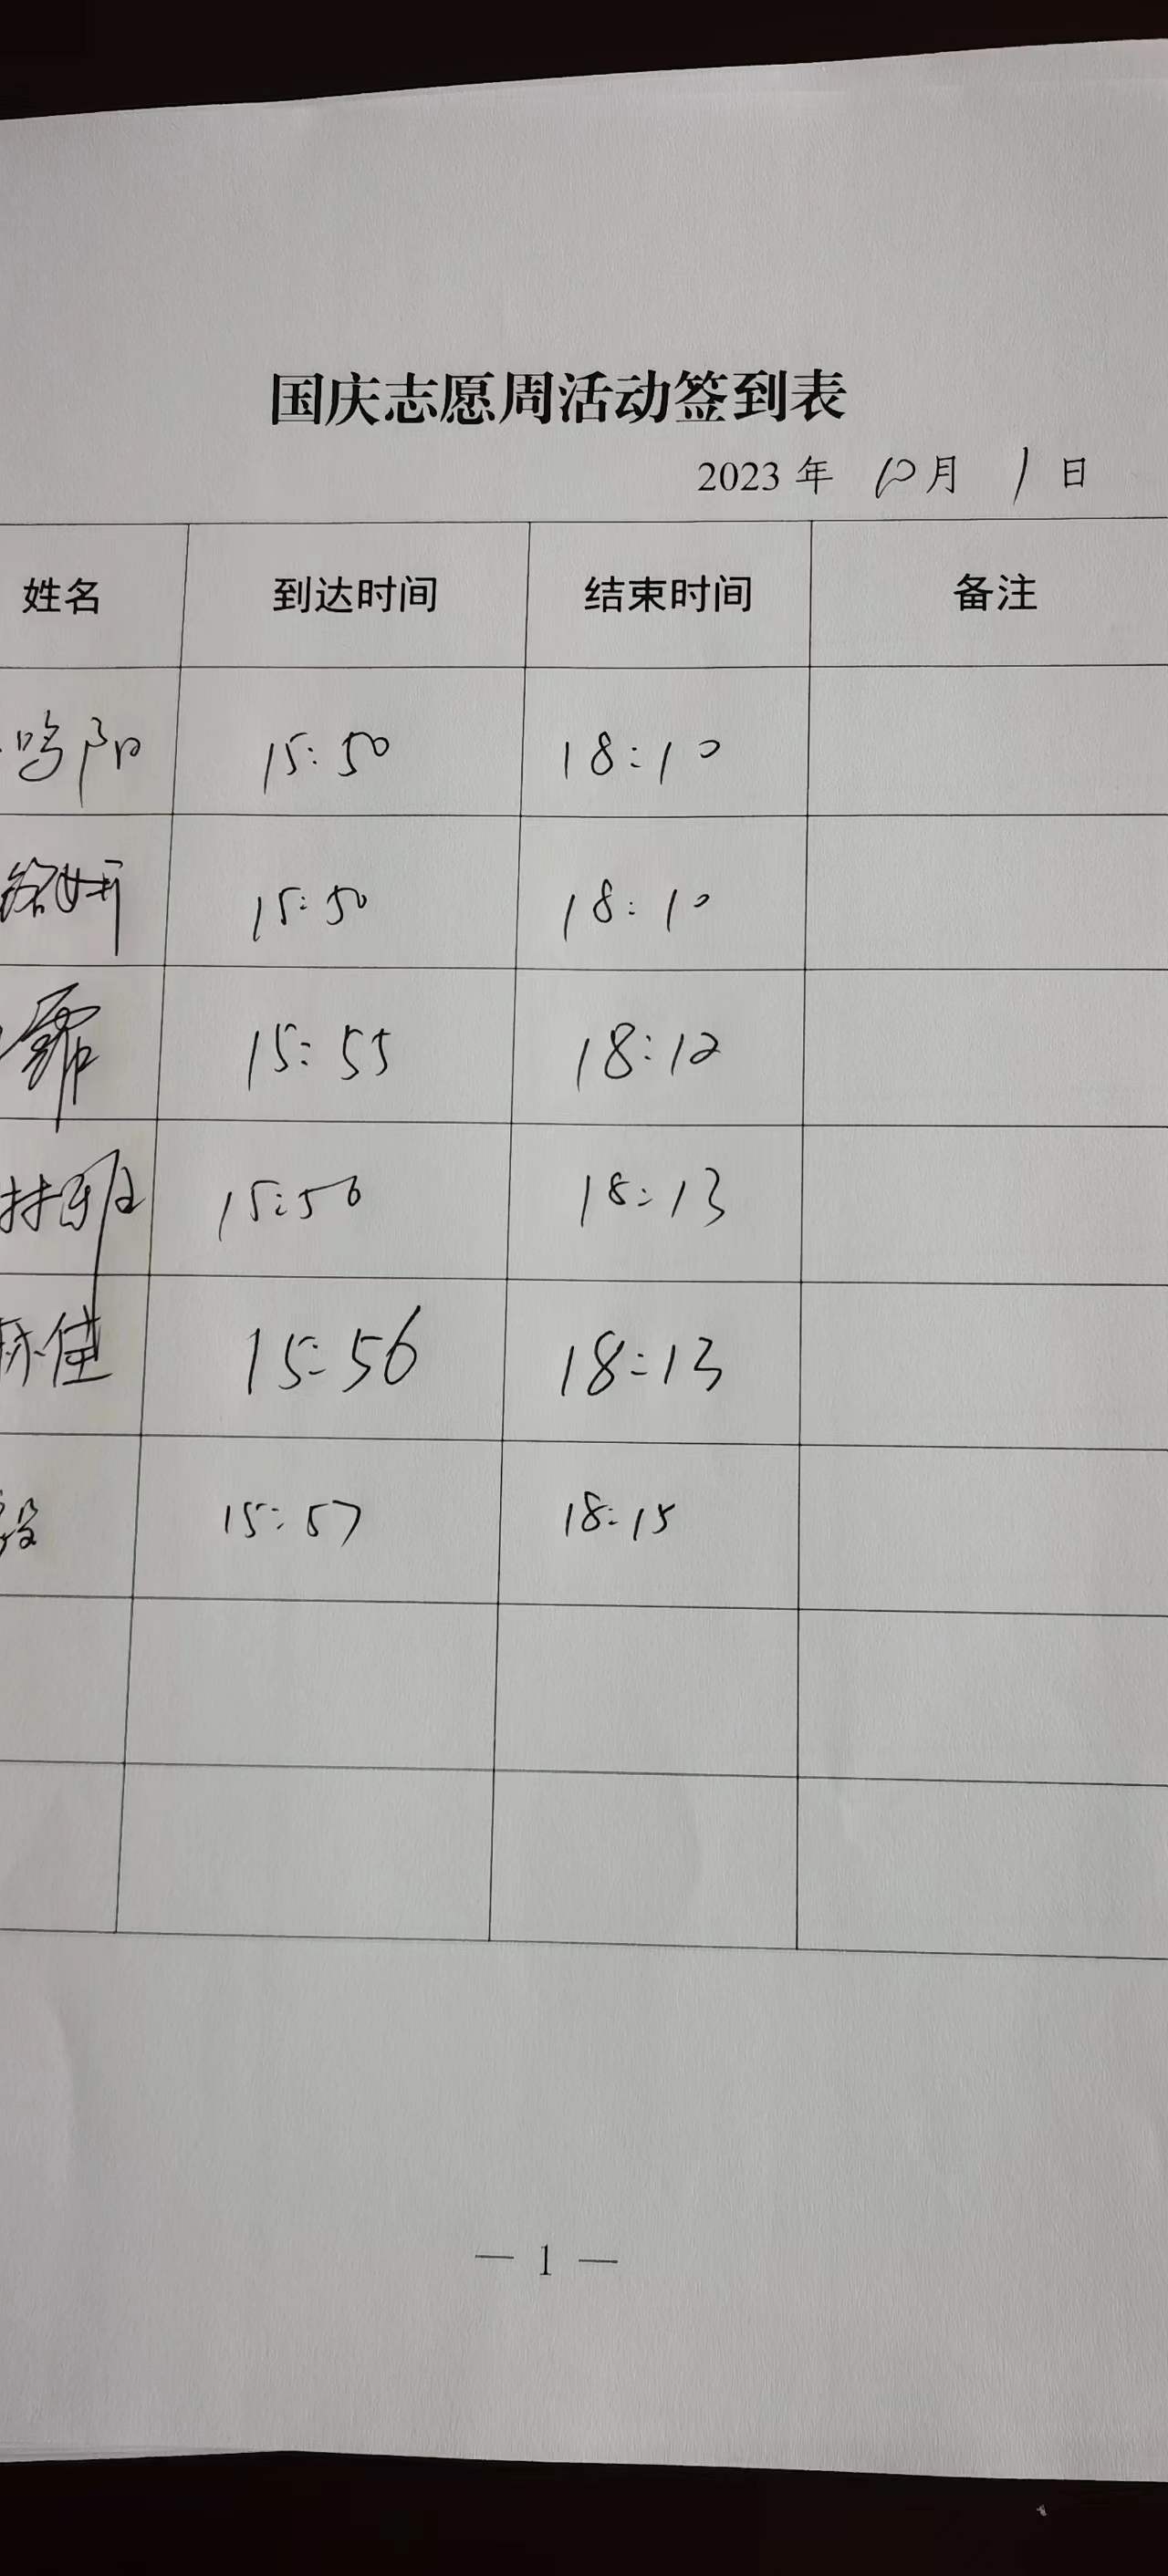 国庆志愿周活动签到表
2023 年 10 月 1 日
姓名 到达时间 结束时间 备注
鸣阳 15:50 18:10
铭妍 15:50 18:10
霏 15:55 18:12
15:56 18:13
佳 15:56 18:13
15:57 18:15
— 1 —